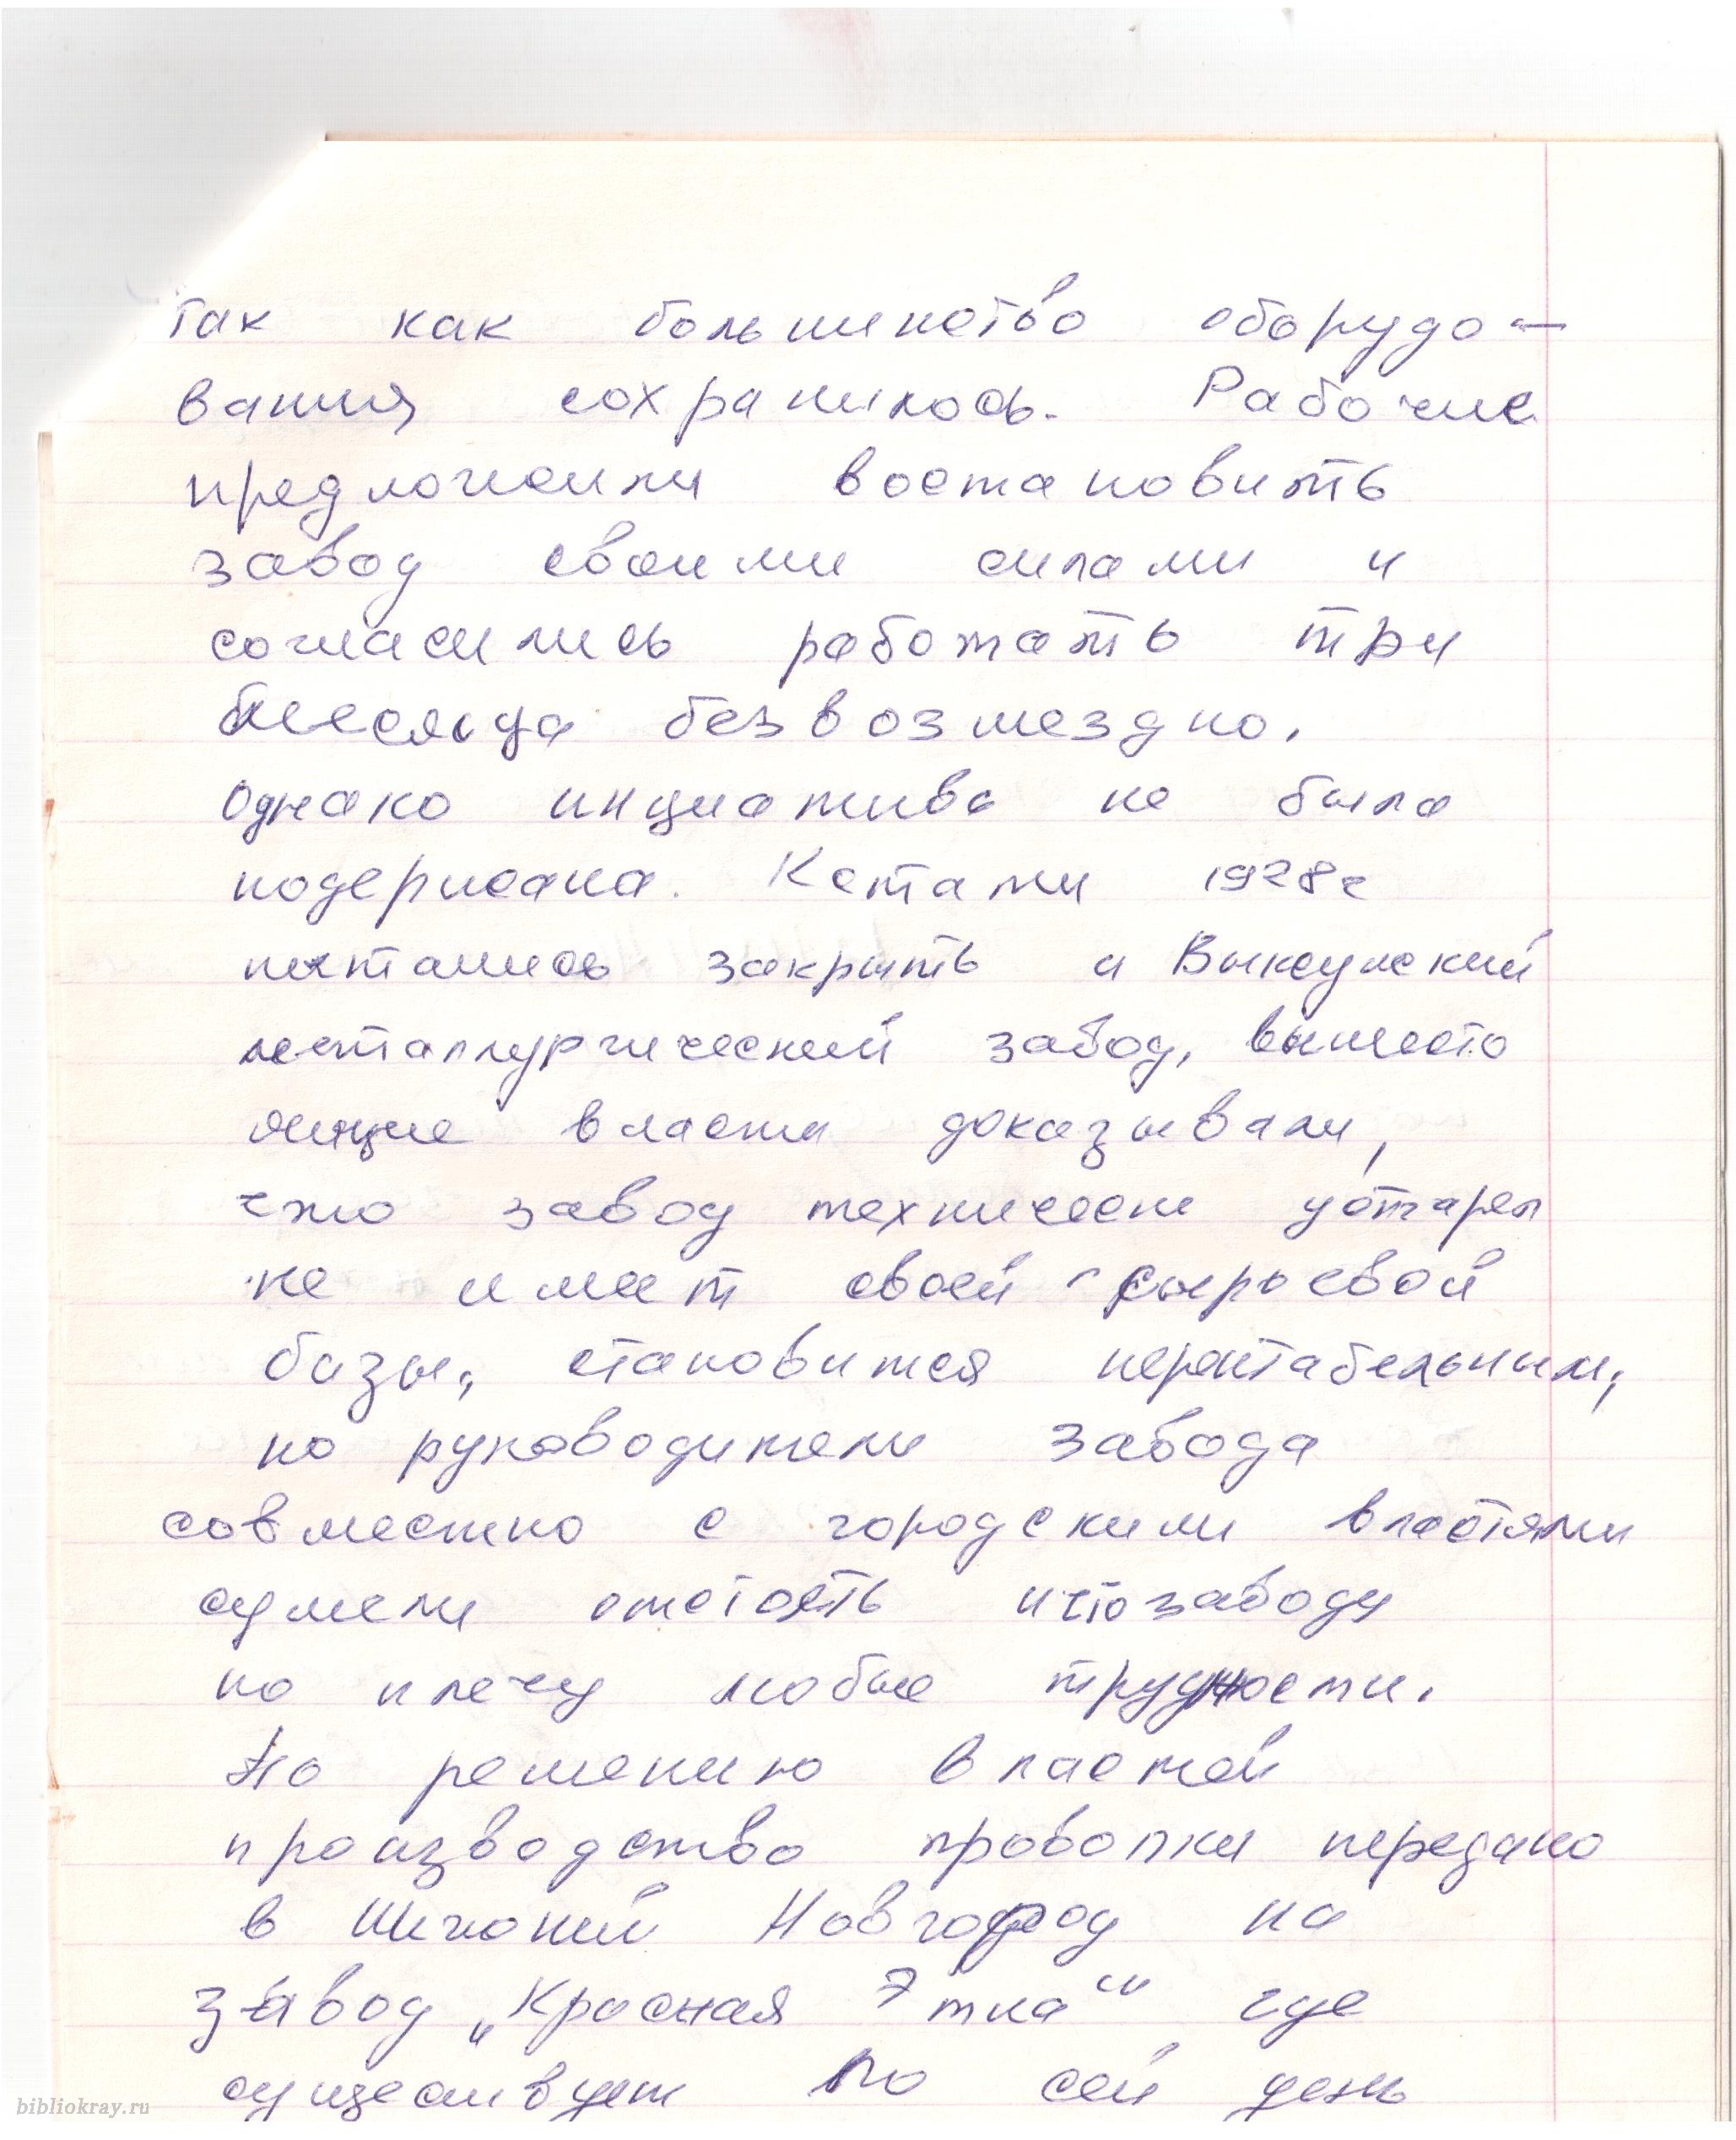 так как большинство оборудо-
вания сохранилось. Рабочие
предложили востановить
завод своими силами и
согласились работать три
месяца безвозмездно.
Однако инциатива не была
подержана. Кстати 1928г
пытались закрыть и Выксунский
металлургический завод, вышесто
ящие власти доказывали,
что завод технически устарел
не имеет своей сырьевой
базы, становится нерентабельным,
но руководители завода
совместно с городскими властями
сумели отстоять что заводу
по плечу любые трудности.
По решению властей
производство проволки передано
в Нижний Новгород на
завод „Красная Этна“ где
сущесивует по сей день
bibliokray.ru